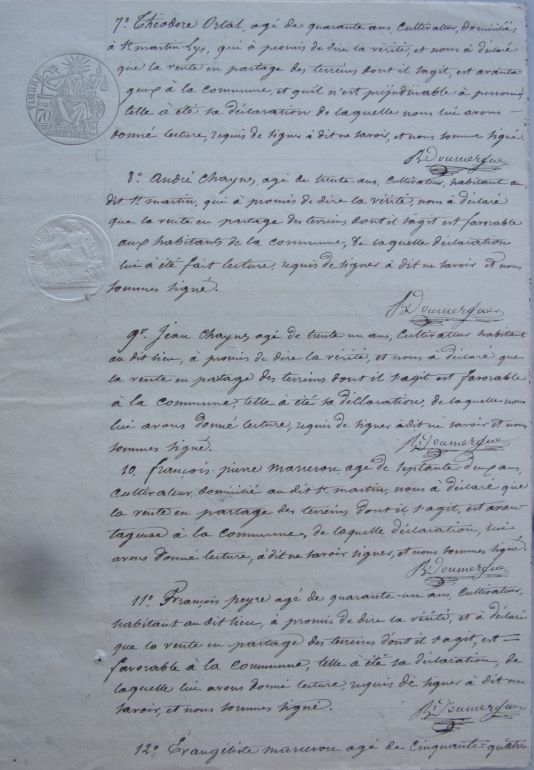 7º Théodore Ortal, agé de quarante ans, Cultivateur, domicilié,
à St martin Lys, qui à promis de dire la vérité, et nous à déclaré
que la vente en partage des terreins dont il sagit, est avanta
geux à la commune, et quil n'est préjudiciable à personne
telle à été sa déclaration de laquelle nous lui avons
donné lecture, requis de signer à dit ne savoir, et nous somme signé.
R Doumergue
8º André Chaynes, agé de trente ans, Cultivateur, habitant au
dit St martin, qui à promis de dire la vérité, nous à déclaré
que la vente en partage des terreins dont il sagit est favorable
aux habitants de la commune, de laquelle déclaration
lui à été fait lecture, requis de signer à dit ne savoir et nous
sommes signé.
R Doumergue
9º Jean Chaynes agé de trente un ans, Cultivateur habitant
au dit lieu, à promis de dire la vérité, et nous à déclaré que
la vente en partage des terreins dont il sagit est favorable
à la commune, telle à été sa déclaration, de laquelle nous
lui avons donné lecture, requis de signer à dit ne savoir et nous
sommes signé.
R Doumergue
10. françois pierre manerou agé de septante deux ans,
Cultivateur, domicilié au dit St martin, nous à déclaré que
la vente en partage des terreins dont il sagit, est avan
tageuse à la commune, de laquelle déclaration, lui
avons donné lecture, à dit ne savoir signer, et nous sommes signé.
R Doumergue
11º François peyre agé de quarante un ans, Cultivateur,
habitant au dit lieu, à promis de dire la vérité, et à déclaré
que la vente en partage des terreins dont il sagit, est
favorable à la commune, telle à été sa déclaration, de
laquelle lui avons donné lecture, requis de signer à dit ne
savoir, et nous sommes signé.
R Doumergue
12º Evangéliste manerou agé de Cinquante quatre